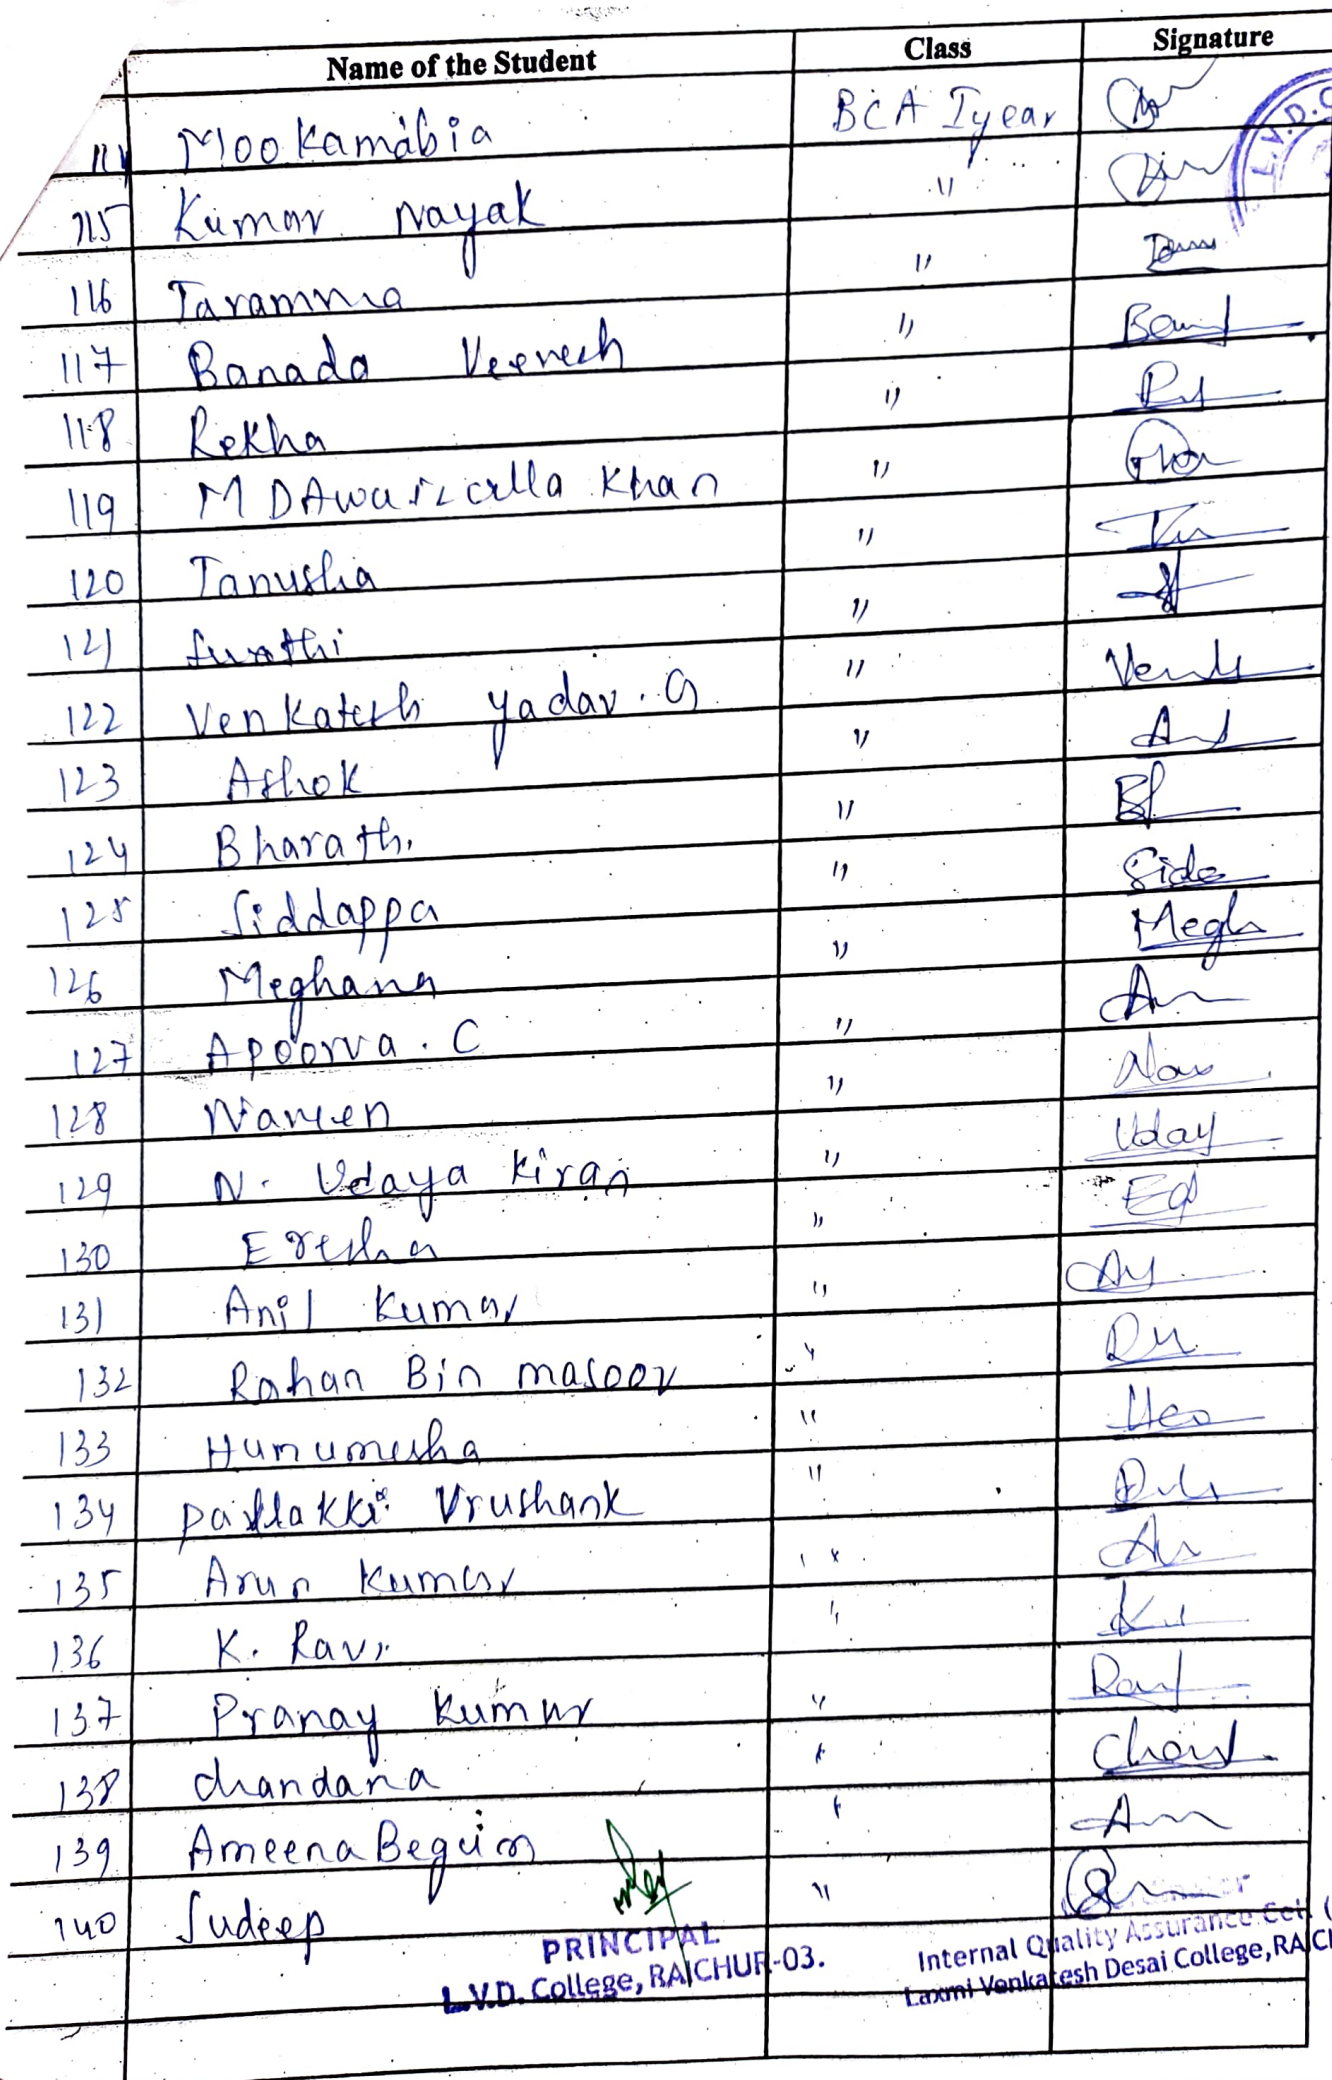 Name of the Student Class Signature
114 Mookamabia BCA I year
115 Kumar Nayak "
116 Taramma "
117 Banada Veeresh " Ban
118 Rekha "
119 M D Awaizulla Khan "
120 Tanusha "
121 "
122 Venkatesh yadav. G " Venk
123 Ashok "
124 Bharath. "
125 Siddappa " Sida
126 Meghana " Megh
127 Apoorva. C "
128 Naveen " Nav
129 N. Udaya Kiran " Uday
130 Eresha "
131 Anil Kumar "
132 Rahan Bin masoor "
133 Hunumesha "
134 Vrushank "
135 Arun Kumar "
136 K. Ravi "
137 Pranay Kumar "
138 chandana "
139 Ameena Begum "
140 Sudeep "
L.V.D.C
PRINCIPAL
L.V.D. College, RAICHUR-03.
Internal Quality Assurance Cell (
Laxmi Venkatesh Desai College, RAICH